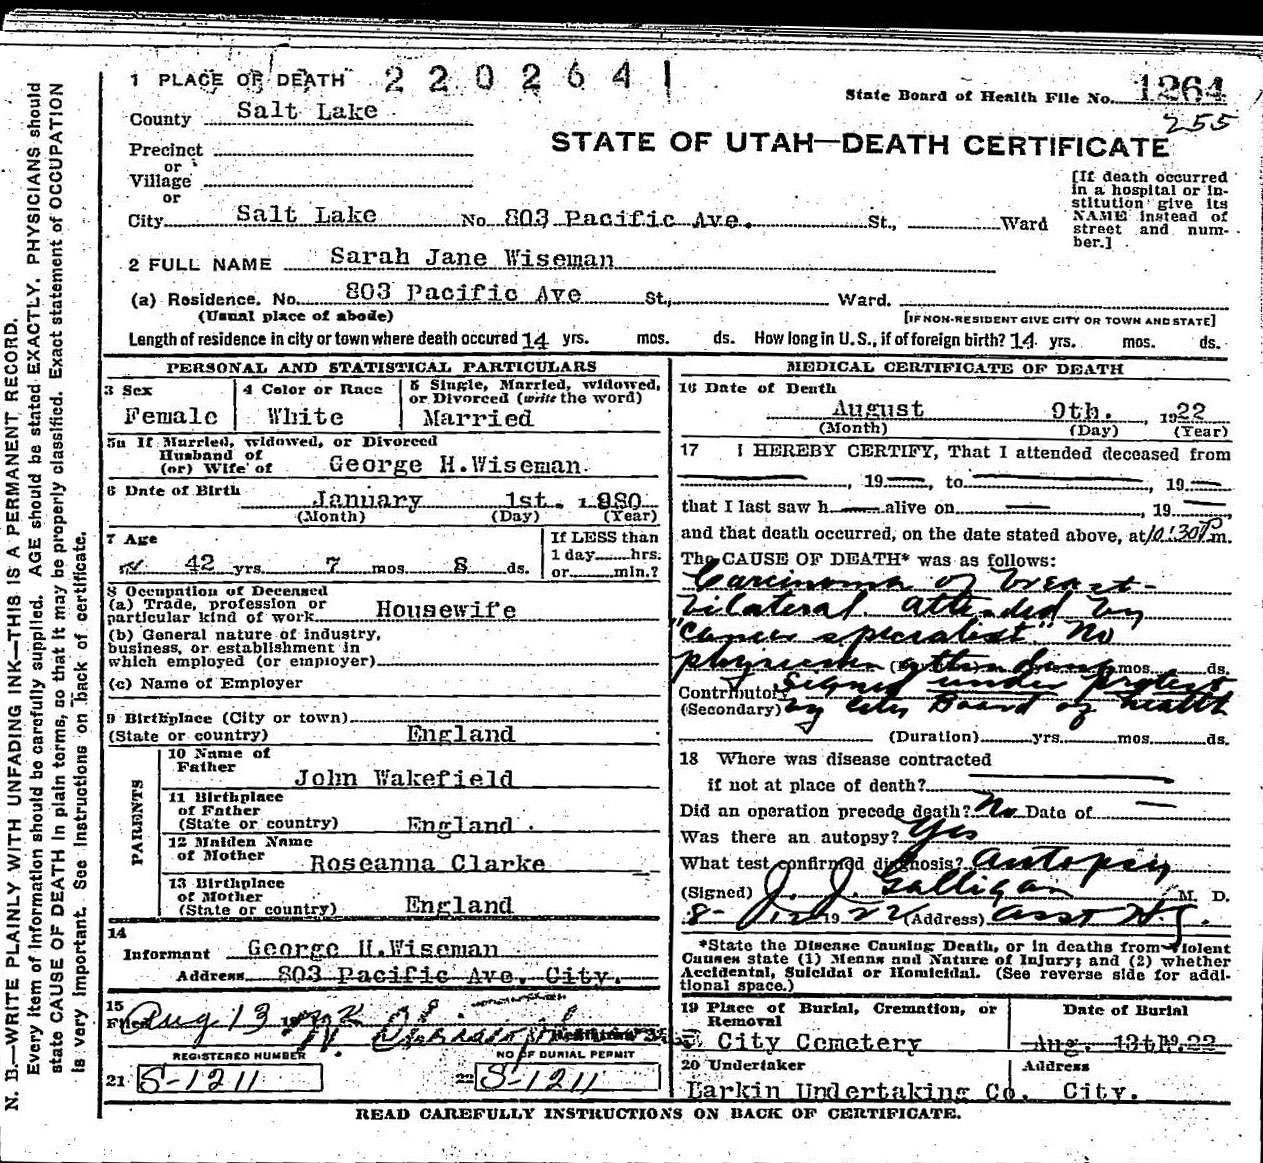 1 PLACE OF DEATH 220264
State Board of Health File No. 1264
255
County Salt Lake
STATE OF UTAH—DEATH CERTIFICATE
Precinct
or
Village
or
City Salt Lake No 803 Pacific Ave. St., Ward
[If death occurred in a hospital or institution give its NAME instead of street and number.]
2 FULL NAME Sarah Jane Wiseman
(a) Residence. No. 803 Pacific Ave St., Ward.
(Usual place of abode) [IF NON-RESIDENT GIVE CITY OR TOWN AND STATE]
Length of residence in city or town where death occured 14 yrs. mos. ds. How long in U. S., if of foreign birth? 14 yrs. mos. ds.
PERSONAL AND STATISTICAL PARTICULARS
3 Sex Female
4 Color or Race White
5 Single, Married, widowed, or Divorced (write the word) Married
5a If Married, widowed, or Divorced
Husband of
(or) Wife of George H.Wiseman.
6 Date of Birth January 1st. 1880
(Month) (Day) (Year)
7 Age 42 yrs. 7 mos 8 ds.
If LESS than
1 day hrs.
or min.?
8 Occupation of Deceased
(a) Trade, profession or
particular kind of work Housewife
(b) General nature of industry,
business, or establishment in
which employed (or employer)
(c) Name of Employer
9 Birthplace (City or town)
(State or country) England
PARENTS
10 Name of
Father John Wakefield
11 Birthplace
of Father
(State or country) England.
12 Maiden Name
of Mother Roseanna Clarke
13 Birthplace
of Mother
(State or country) England
14
Informant George H.Wiseman
Address 803 Pacific Ave, City.
15
Filed Aug 13 1922
REGISTERED NUMBER
21 S-1211
NO OF BURIAL PERMIT
22 S-1211
MEDICAL CERTIFICATE OF DEATH
16 Date of Death
August 9th. 1922
(Month) (Day) (Year)
17 I HEREBY CERTIFY, That I attended deceased from
, 19 , to , 19
that I last saw h alive on , 19 ,
and that death occurred, on the date stated above, at 10:30 P m.
The CAUSE OF DEATH* was as follows:
Carcinoma of breast-
bilateral. attended by
"Cancer specialist" No
physician attending mos. ds.
Contributory Signed under protest
(Secondary) by City Board of health
(Duration) yrs. mos. ds.
18 Where was disease contracted
if not at place of death?
Did an operation precede death? No Date of
Was there an autopsy? Yes
What test confirmed diagnosis? Autopsy
(Signed) J. J. Galligan M. D.
8-12 1922 (Address)
*State the Disease Causing Death, or in deaths from Violent
Causes state (1) Means and Nature of Injury; and (2) whether
Accidental, Suicidal or Homicidal. (See reverse side for additional space.)
19 Place of Burial, Cremation, or
Removal
City Cemetery
Date of Burial
Aug. 13th 1922
20 Undertaker
Larkin Undertaking Co.
Address
City.
READ CAREFULLY INSTRUCTIONS ON BACK OF CERTIFICATE.
N. B.—WRITE PLAINLY WITH UNFADING INK—THIS IS A PERMANENT RECORD.
Every item of information should be carefully supplied. AGE should be stated EXACTLY. PHYSICIANS should
state CAUSE OF DEATH in plain terms, so that it may be properly classified. Exact statement of OCCUPATION
is very important. See instructions on back of certificate.